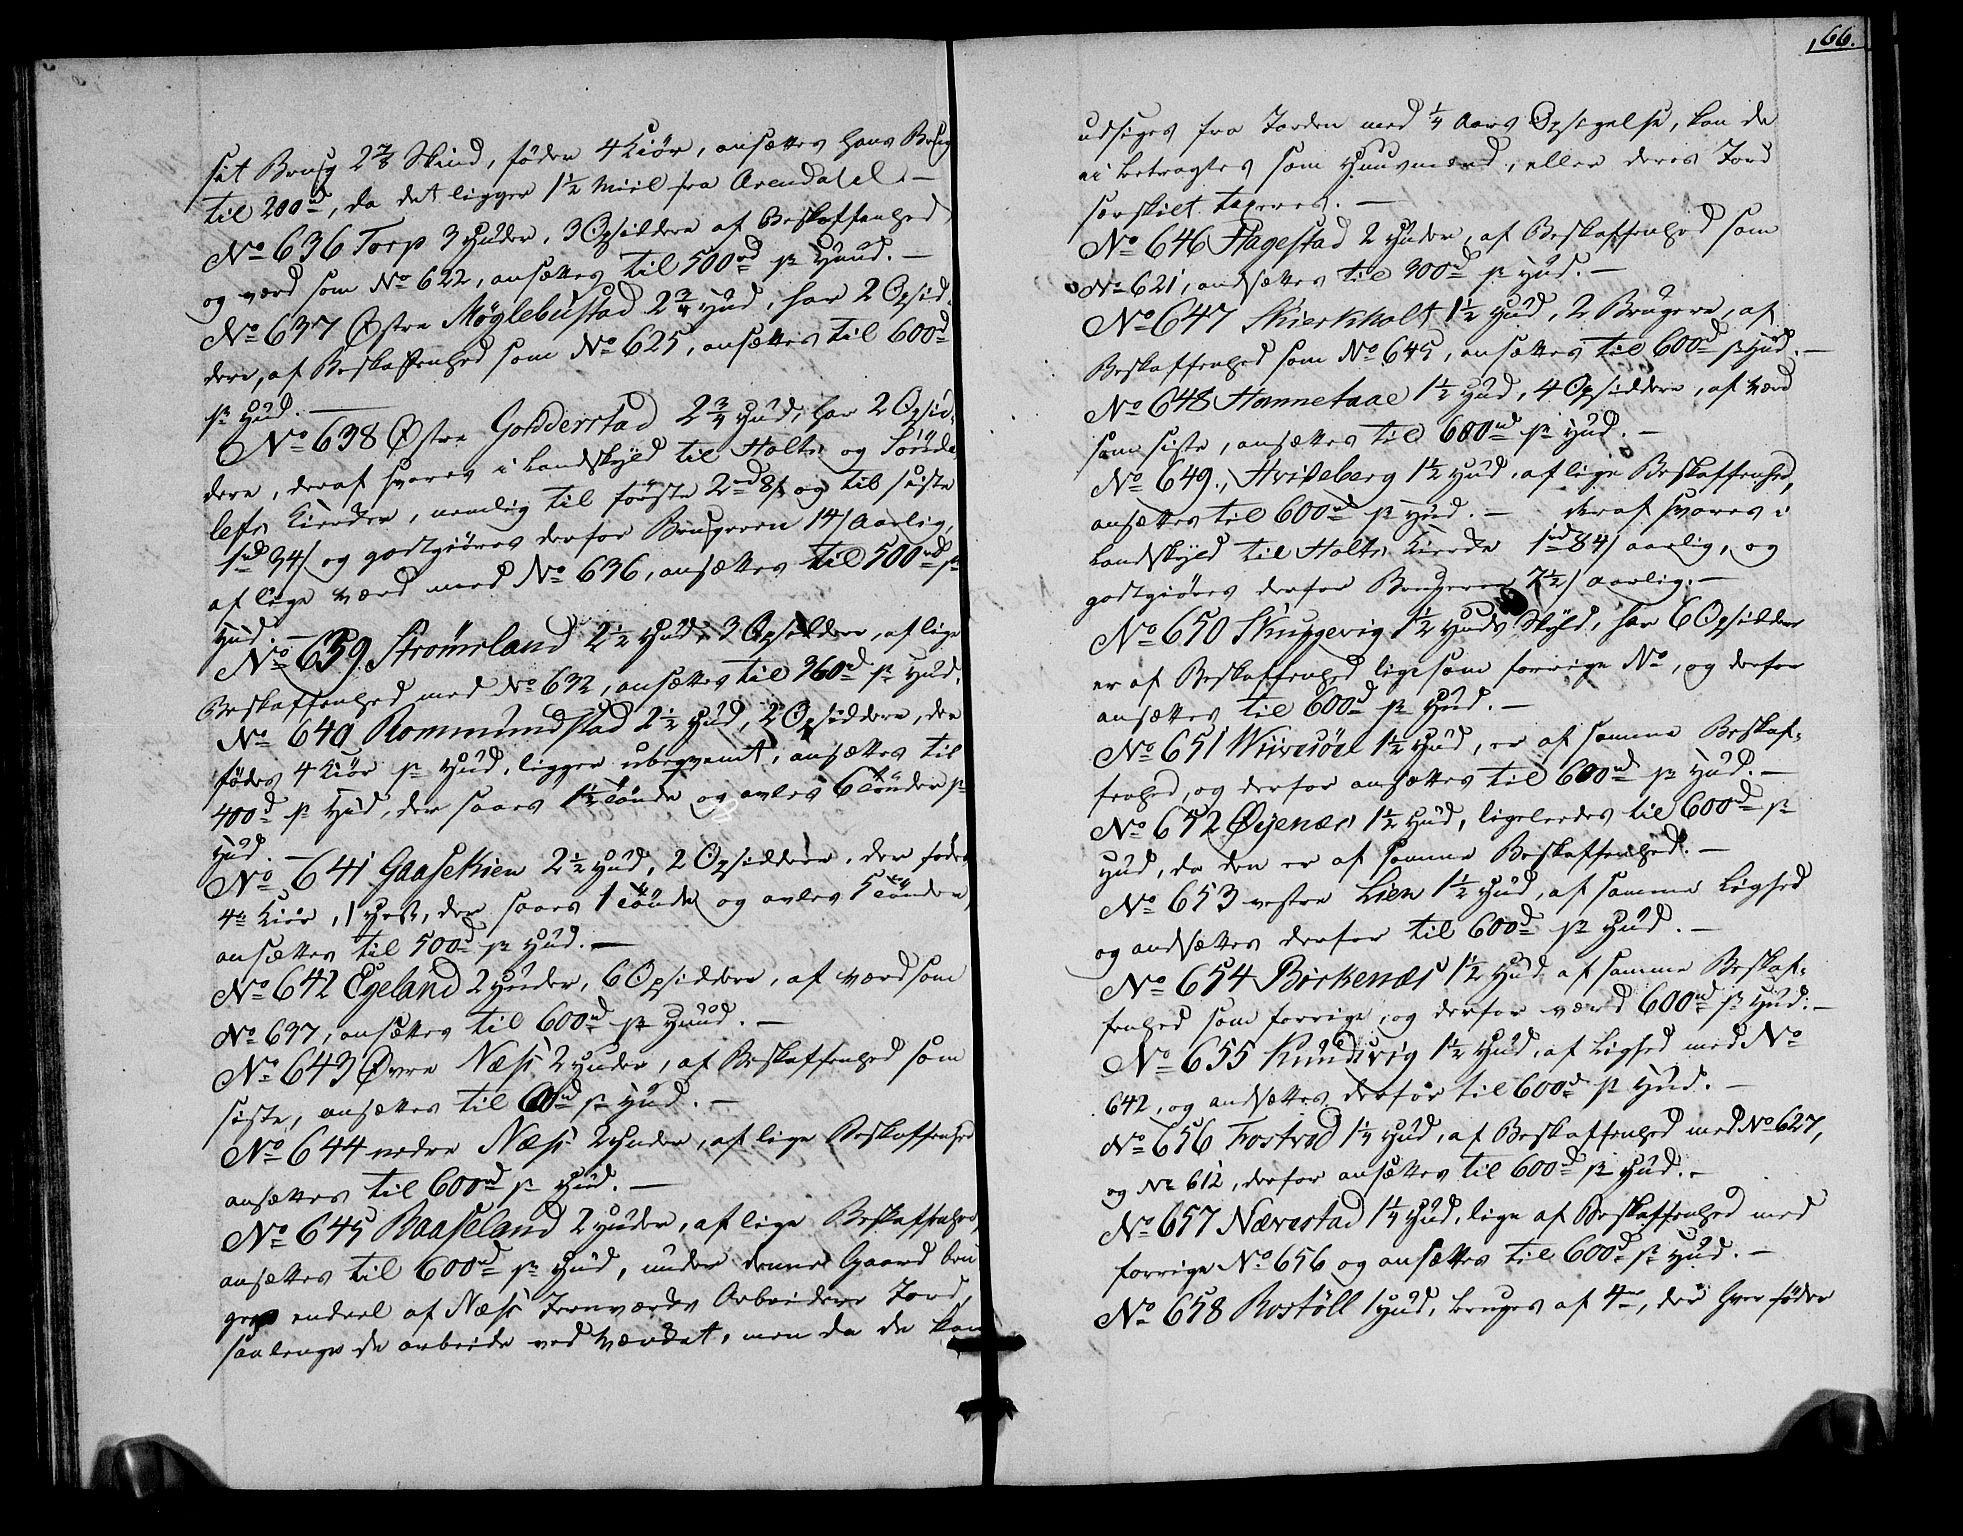 sit Brug 2 7/8 Skind, föder 4 Kiör, ansættes hans Brug
til 200rd, da det ligger 1½ Miil fra Arendahl. —
No 636 Torp 3 Huder, 3 Opsiddere af Beskaffenhed
og værd som No 622, ansættes til 500rd pr Huud. —
No 637 Østre Møglebustad 2¾ Hud, har 2 Opsid-
dere, af Beskaffenhed som No 625, ansættes til 600rd
pr Hud. —
No 638 Østre Goldderstad 2¾ Hud, har 2 Opsid-
dere, deraf svares i Landskyld til Holts og
Kirker, nemlig til förste 2rd 8s og til sidste
1rd 34s og godtgiöres derfor Brugeren 14s aarlig,
af lige værd med No 636, ansættes til 500rd pr
Hud. —
No 639 Strömsland 2½ Hud, 3 Opsiddere, af lige
Beskaffenhed med No 632, ansættes til 360rd pr Hud.
No 640 Rommundstad 2½ Hud, 2 Opsiddere, der
födes 4 Kiör pr Hud, ligger ubeqvemt, ansættes til
400rd pr Hud, der saaes 1½ Tönde og avles 6 Tönder pr
Hud. —
No 641 Gaasekien 2½ Hud, 2 Opsiddere, der födes
4 Kiör, 1 Hest, der saaes 1 Tönde og avles 5 Tönder,
ansættes til 500rd pr Hud. —
No 642 Egeland 2 Huder, 6 Opsiddere, af værd som
No 637, ansættes til 600rd pr Huud. —
No 643 Øvre Næss 2 Huder, af Beskaffenhed som
siste, ansættes til 600rd pr Hud. —
No 644 nedre Næss 2 Huder, af lige Beskaffenhed
ansættes til 600rd pr Hud. —
No 645 Baaseland 2 Huder, af lige Beskaffenhed,
ansættes til 600rd pr Hud, under denne Gaard bru-
ges endeel af Næss Jernværks Arbeidere Jord,
saalenge de arbeide ved Værket, men da de kan
166.
udsiges fra Jorden med ¼ Aars Opsigelse, kan de
ei betragtes som Huusmænd, eller deres Jord
særskilt taxeres. —
No 646 Hagestad 2 Huder, af Beskaffenhed som
No 621, andsættes til 300rd pr Hud. —
No 647 Skierkholt 1½ Hud, 2 Brugere, af
Beskaffenhed som No 645, ansættes til 600rd pr Hud. —
No 648 Hannetaae 1½ Hud, 4 Opsiddere, af værd
som siste, ansættes til 600rd pr Hud. —
No 649, Hvideberg 1½ Hud, af lige Beskaffenhed,
ansættes til 600rd pr Hud. — deraf svares i
Landskyld til Holts Kierke 1rd 84s aarlig, og
godtgiöres derfor Brugeren 7½s aarlig. —
No 650 Skuggevig 1½ Huds Skyld, har 6 Opsiddere
er af Beskaffenhed ligesom forrige No, og derfor
ansættes til 600rd pr Hud. —
No 651 Wiivesöe 1½ Hud, er af samme Beskaf-
fenhed, og derfor ansættes til 600rd pr Hud. —
No 652 Øyenæs 1½ Hud, ligeledes til 600rd pr
Hud, da den er af samme Beskaffenhed. —
No 653 vestre Lien 1½ Hud, af samme Lighed
og andsættes derfor til 600rd pr Hud. —
No 654 Birkenæs 1½ Hud af samme Beskaf-
fenhed som forrige, og derfor værd 600rd pr Hud. —
No 655 Sundsvig 1½ Hud, af Lighed med No
642, og andsættes derfor til 600rd pr Hud. —
No 656 Fostved 1¼ Hud, af Beskaffenhed med No 627,
og No 612, derfor ansættes til 600rd pr Hud. —
No 657 Nævestad 1¼ Hud, lige af Beskaffenhed med
forrige No 656 og ansættes til 600rd pr Hud. —
No 658 Rostöll 1 Hud, bruges af 4re, der hver föder